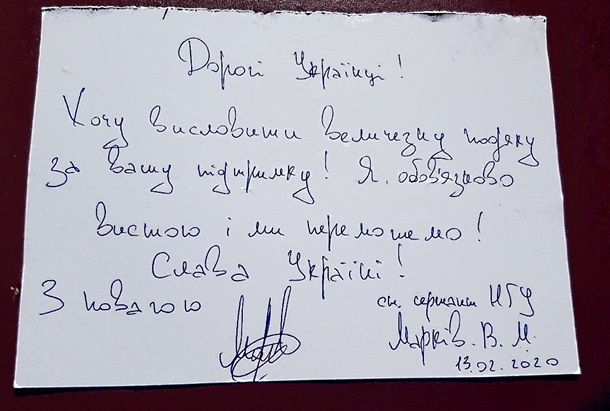 Дорогі Українці!
Хочу висловити величезну подяку
за вашу підтримку! Я обов'язково
вистою і ми переможемо!
Слава Україні!
З повагою
ст. сержант НГУ
Марків. В. М.
13.02. 2020